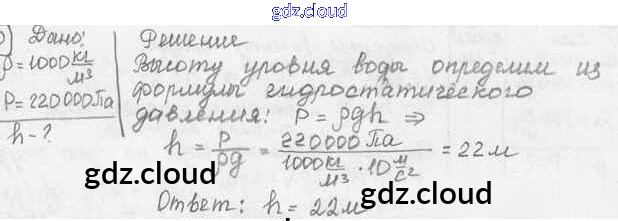 gdz.cloud
Дано:
ρ = 1000 кг/м³
P = 220000 Па
h - ?
Решение
Высоту уровня воды определим из
формулы гидростатического
давления: P = ρgh ⇒
h = P/ρg = 220000 Па / 1000 кг/м³ · 10 м/с² = 22 м
gdz.cloud
gdz.cloud
Ответ: h = 22 м